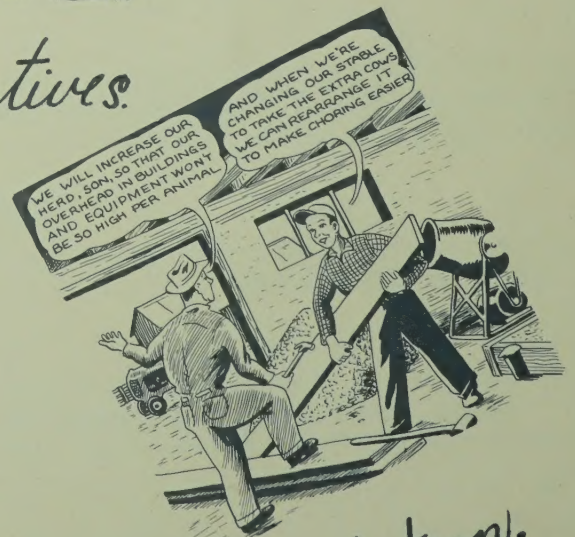 tives.
WE WILL INCREASE OUR
HERD, SON, SO THAT OUR
OVERHEAD IN BUILDINGS
AND EQUIPMENT WON'T
BE SO HIGH PER ANIMAL
AND WHEN WE'RE
CHANGING OUR STABLE
TO TAKE THE EXTRA COWS
WE CAN REARRANGE IT
TO MAKE CHORING EASIER